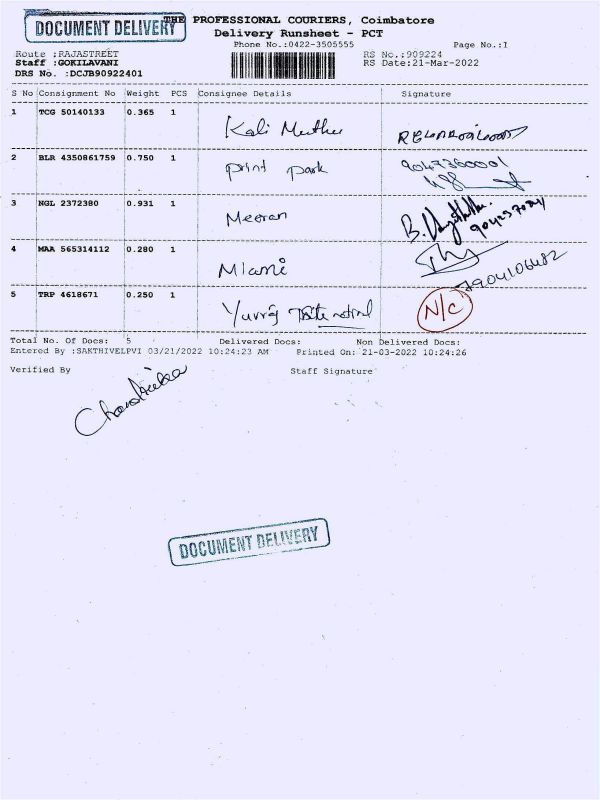 DOCUMENT DELIVERY
THE PROFESSIONAL COURIERS, Coimbatore
Delivery Runsheet - PCT
Phone No.:0422-3505555 Page No.:1
Route :RAJASTREET RS No.:909224
Staff :GOKILAVANI RS Date:21-Mar-2022
DRS No. :DCJB90922401
S No Consignment No Weight PCS Consignee Details Signature
1 TCG 50140133 0.365 1 Kali Muthu
2 BLR 4350861759 0.750 1 print park 9047360001
3 NGL 2372380 0.931 1 Meeran
4 MAA 565314112 0.280 1 Miami 7904106482
5 TRP 4618671 0.250 1 Yuvraj N/C
Total No. Of Docs: 5 Delivered Docs: Non Delivered Docs:
Entered By :SAKTHIVELPVI 03/21/2022 10:24:23 AM Printed On: 21-03-2022 10:24:26
Verified By Staff Signature
DOCUMENT DELIVERY